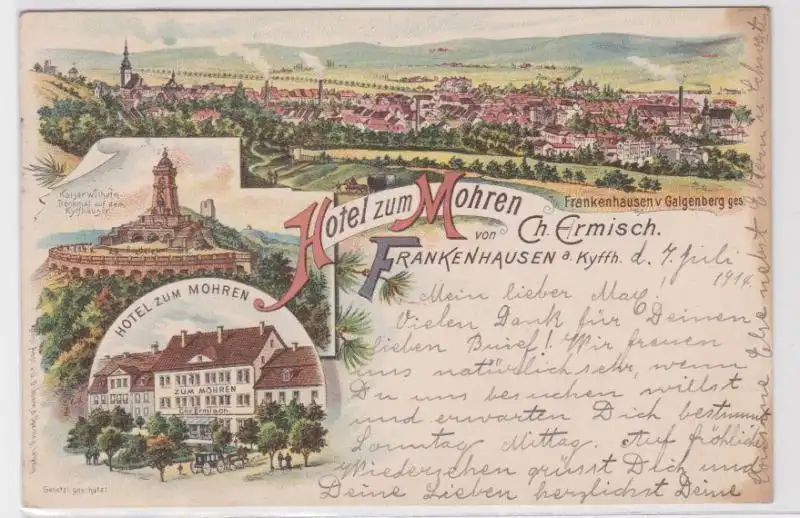 Kaiser Wilhelm
Denkmal auf dem
Kyffhäuser.
Frankenhausen v Galgenberg ges.
Hotel zum Mohren
von Ch. Ermisch.
Frankenhausen a. Kyffh. d. 7. Juli
1914.
HOTEL ZUM MOHREN
ZUM MOHREN
Chr. Ermisch.
Gesetzl. geschützt
Mein lieber Max!
Vielen Dank für Deinen
lieben Brief! Wir freuen
uns natürlich sehr, wenn
Du uns besuchen willst
und erwarten Dich bestimmt
Sonntag Mittag. Auf fröhliches
Wiedersehen grüsst Dich und
Deine Lieben herzlichst Deine
Else nebst Eltern u.